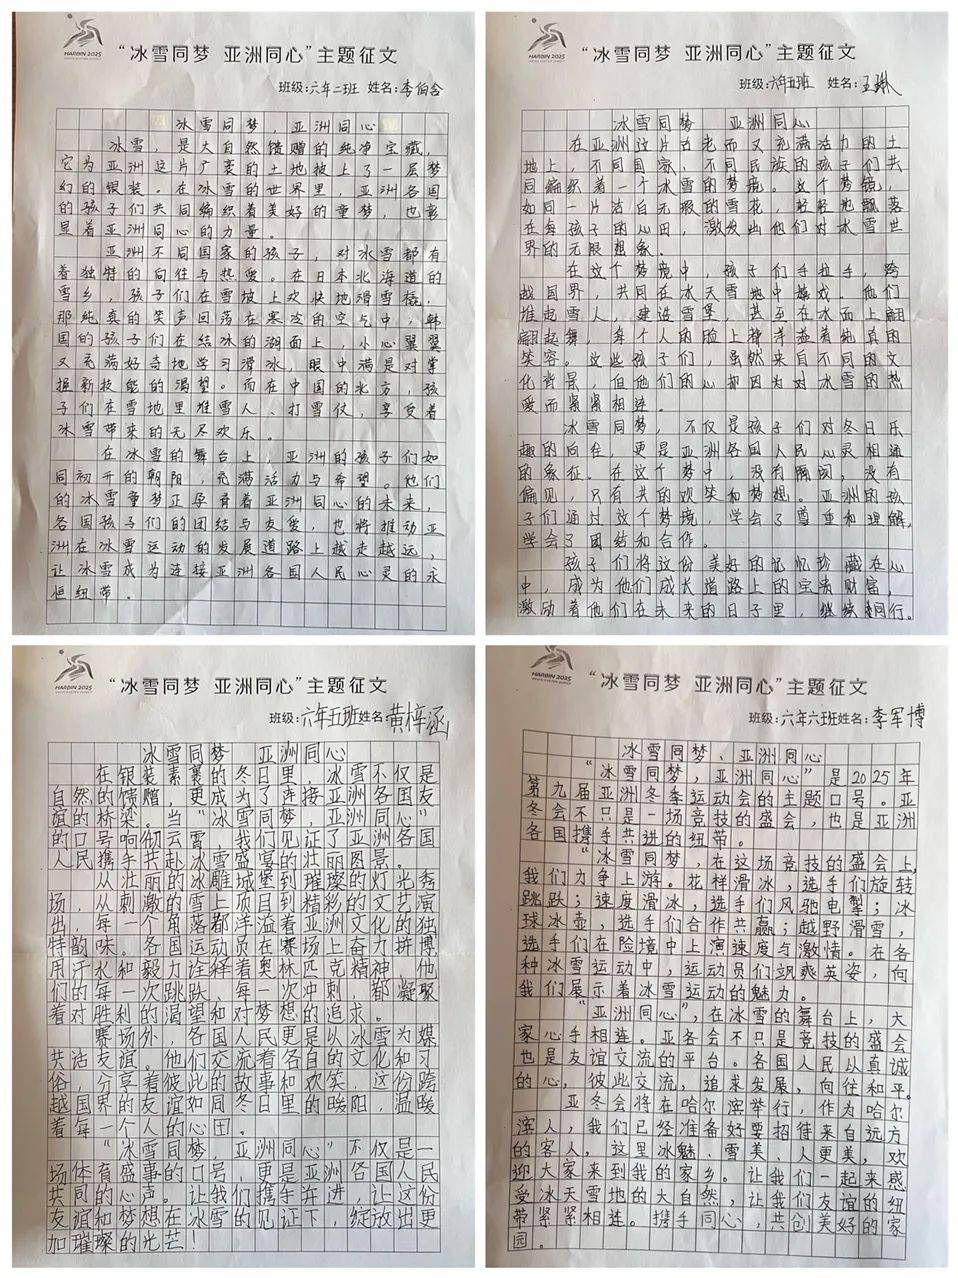 HARBIN 2025
“冰雪同梦 亚洲同心”主题征文
班级:六年二班 姓名:李伯含
冰雪同梦，亚洲同心
冰雪，是大自然馈赠的纯净宝藏，
它为亚洲这片广袤的土地披上了一层梦
幻的银装。在冰雪的世界里，亚洲各国
的孩子们共同编织着美好的童梦，也彰
显着亚洲同心的力量。
亚洲不同国家的孩子，对冰雪都有
着独特的向往与热爱。在日本北海道的
雪乡，孩子们在雪坡上欢快地滑雪橇，
那纯真的笑声回荡在寒冷的空气中，韩
国的孩子们在结冰的湖面上，小心翼翼
又充满好奇地学习滑冰，眼中满是对掌
握新技能的渴望。而在中国的北方，孩
子们在雪地里堆雪人、打雪仗，享受着
冰雪带来的无尽欢乐。
在冰雪的舞台上，亚洲的孩子们如
同初升的朝阳，充满活力与希望。他们
的冰雪童梦正孕育着亚洲同心的未来，
各国孩子们的团结与友爱，也将推动亚
洲在冰雪运动的发展道路上越走越远，
让冰雪成为连接亚洲各国人民心灵的永
恒纽带。
HARBIN 2025
“冰雪同梦 亚洲同心”主题征文
班级:六年五班 姓名:王
冰雪同梦 亚洲同心
在亚洲这片古老而又充满活力的土
地上，不同国家、不同民族的孩子们共
同编织着一个冰雪的梦境。这个梦境，
如同一片洁白无瑕的雪花，轻轻地飘落
在每孩子的心田，激发出他们对冰雪世
界的无限想象。
在这个梦境中，孩子们手拉手，跨
越国界，共同在冰天雪地中嬉戏。他们
堆起雪人，建造雪堡，甚至在冰面上翩
翩起舞，每个人的脸上都洋溢着纯真的
笑容。这些孩子们，虽然来自不同的文
化背景，但他们的心却因为对冰雪的热
爱而紧紧相连。
冰雪同梦，不仅是孩子们对冬日乐
趣的向往，更是亚洲各国人民心灵相通
的象征。在这个梦中，没有隔阂，没有
偏见，只有共的欢笑和梦想。亚洲的孩
子们通过这个梦境，学会了尊重和理解，
学会了团结和合作。
孩子们将这份美好的记忆珍藏在心
中，成为他们成长道路上的宝贵财富，
激励着他们在未来的日子里，继续同行。
HARBIN 2025
“冰雪同梦 亚洲同心”主题征文
班级:六年五班 姓名:黄梓涵
冰雪同梦 亚洲同心
在银装素裹的冬日里，冰雪不仅是
自然的馈赠，更成为了连接亚洲各国友
谊的桥梁。当“冰雪同梦，亚洲同心”
的口号响彻云霄，我们见证了亚洲各国
人民携手共赴冰雪盛宴的壮丽图景。
从壮丽的冰雕城堡到璀璨的灯光秀
场，从刺激的雪上项目到精彩的文艺演
出，每一个角落都洋溢着亚洲文化的独
特韵味。各国运动员在赛场上奋力拼搏，
用汗水和毅力诠释着奥林匹克精神，他
们的每一次跳跃、每一次冲刺，都凝聚
着对胜利的渴望和对梦想的追求。
赛场外，各国人民更是以冰雪为媒，
共话友谊。他们交流着各自的文化和习
俗，分享着彼此的故事和欢笑，这份跨
越国界的友谊如同冬日里的暖阳，温暖
着每一个人的心田。
“冰雪同梦，亚洲同心”不仅是一
场体育盛事的口号，更是亚洲各国人民
共同的心声。让我们携手并进，让这份
友谊和梦想在冰雪的见证下，绽放出更
加璀璨的光芒！
HARBIN 2025
“冰雪同梦 亚洲同心”主题征文
班级:六年六班 姓名:李军博
冰雪同梦、亚洲同心
“冰雪同梦，亚洲同心”是2025年
第九届亚洲冬季运动会的主题口号。亚
冬会不只是一场竞技的盛会，也是亚洲
各国携手共进的纽带。
“冰雪同梦，在这场竞技的盛会上，
我们力争上游。花样滑冰，选手们旋转
跳跃；速度滑冰，选手们风驰电掣；冰
球冰壶，选手们合作共赢；越野滑雪，
选手们在险境中上演速度与激情。在各
种冰雪运动中，运动员们飒爽英姿，向
我们展示着冰雪运动的魅力。
“亚洲同心”，在冰雪的舞台上，大
家心手相连。亚冬会不只是竞技的盛会
也是友谊交流的平台。各国人民以真诚
的心，彼此交流，追求发展，向往和平。
亚冬会将在哈尔滨举行，作为哈尔
滨人，我们已经准备好要招待来自远方
的客人，这里冰魅、雪美、人更美，欢
迎大家来到我的家乡。让我们一起来感
受冰天雪地的大自然，让我们友谊的纽
带紧紧相连。携手同心，共创美好的家
园。